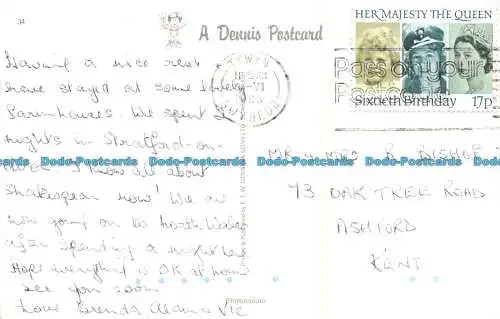 34
A Dennis Postcard
HER MAJESTY THE QUEEN
Sixtieth Birthday 17p
TYWYN
GWYNEDD
Pass on your
Having a nice rest
have stayed at some lovely
farmhouses. We spent 2
nights in Stratford-on-
know all about
Shakespear now! We are
now going on to North Wales
after spending a night here
Hope everything is OK at home
see you soon
Love Brenda Alan & Vic
MR & MRS R BISHOP
73 OAK TREE ROAD
ASHFORD
KENT
Dodo-Postcards Dodo-Postcards Dodo-Postcards Dodo-Postcards Dodo-Postcards
Photocolour